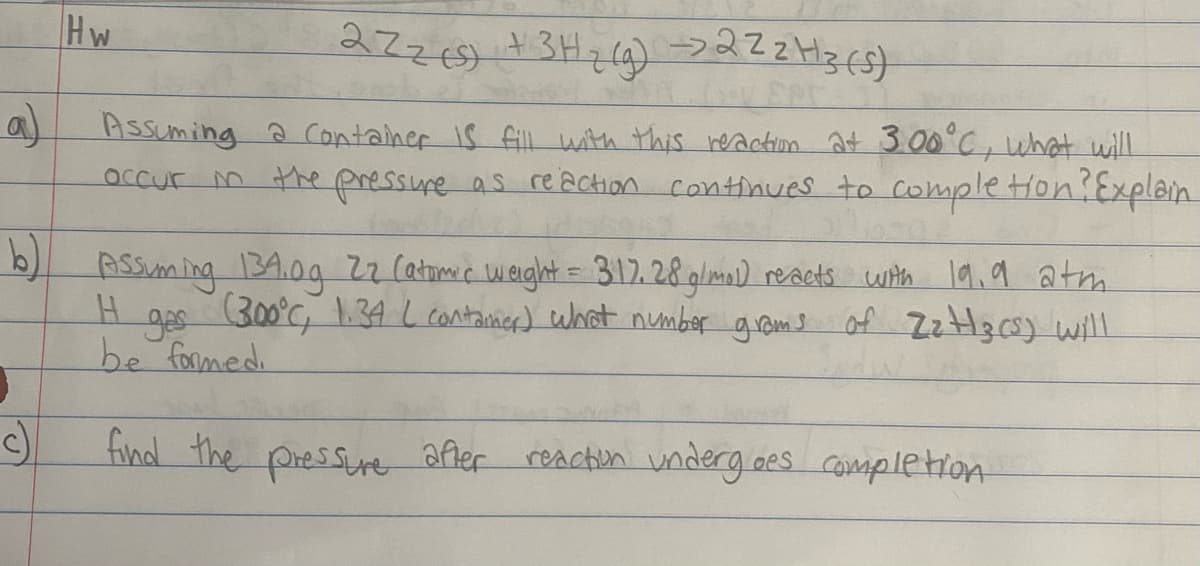 Hw
2Zz(s) + 3H₂(g) → 2ZzH₃(s)
a) Assuming a container is fill with this reaction at 300°C, what will
occur in the pressure as reaction continues to completion? Explain
b) Assuming 134.0g Zz (atomic weight = 317.28 g/mol) reacts with 19.9 atm
H gas (300°C, 1.34 L container) what number grams of ZzH₃(s) will
be formed.
c) find the pressure after reaction undergoes completion